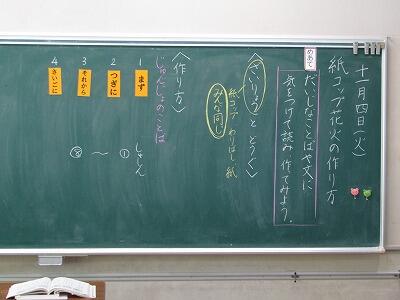 十一月四日(火)
紙コップ花火の作り方
めあて
だいじなことばや文に
気をつけて読み、作てみよう。
〈ざいりょうとどうぐ〉
紙コップ わりばし 紙
みんな同じ
〈作り方〉
じゅんじょのことば
1 まず
2 つぎに
3 それから
4 さいごに
しゃしん
① 〜 ⑧